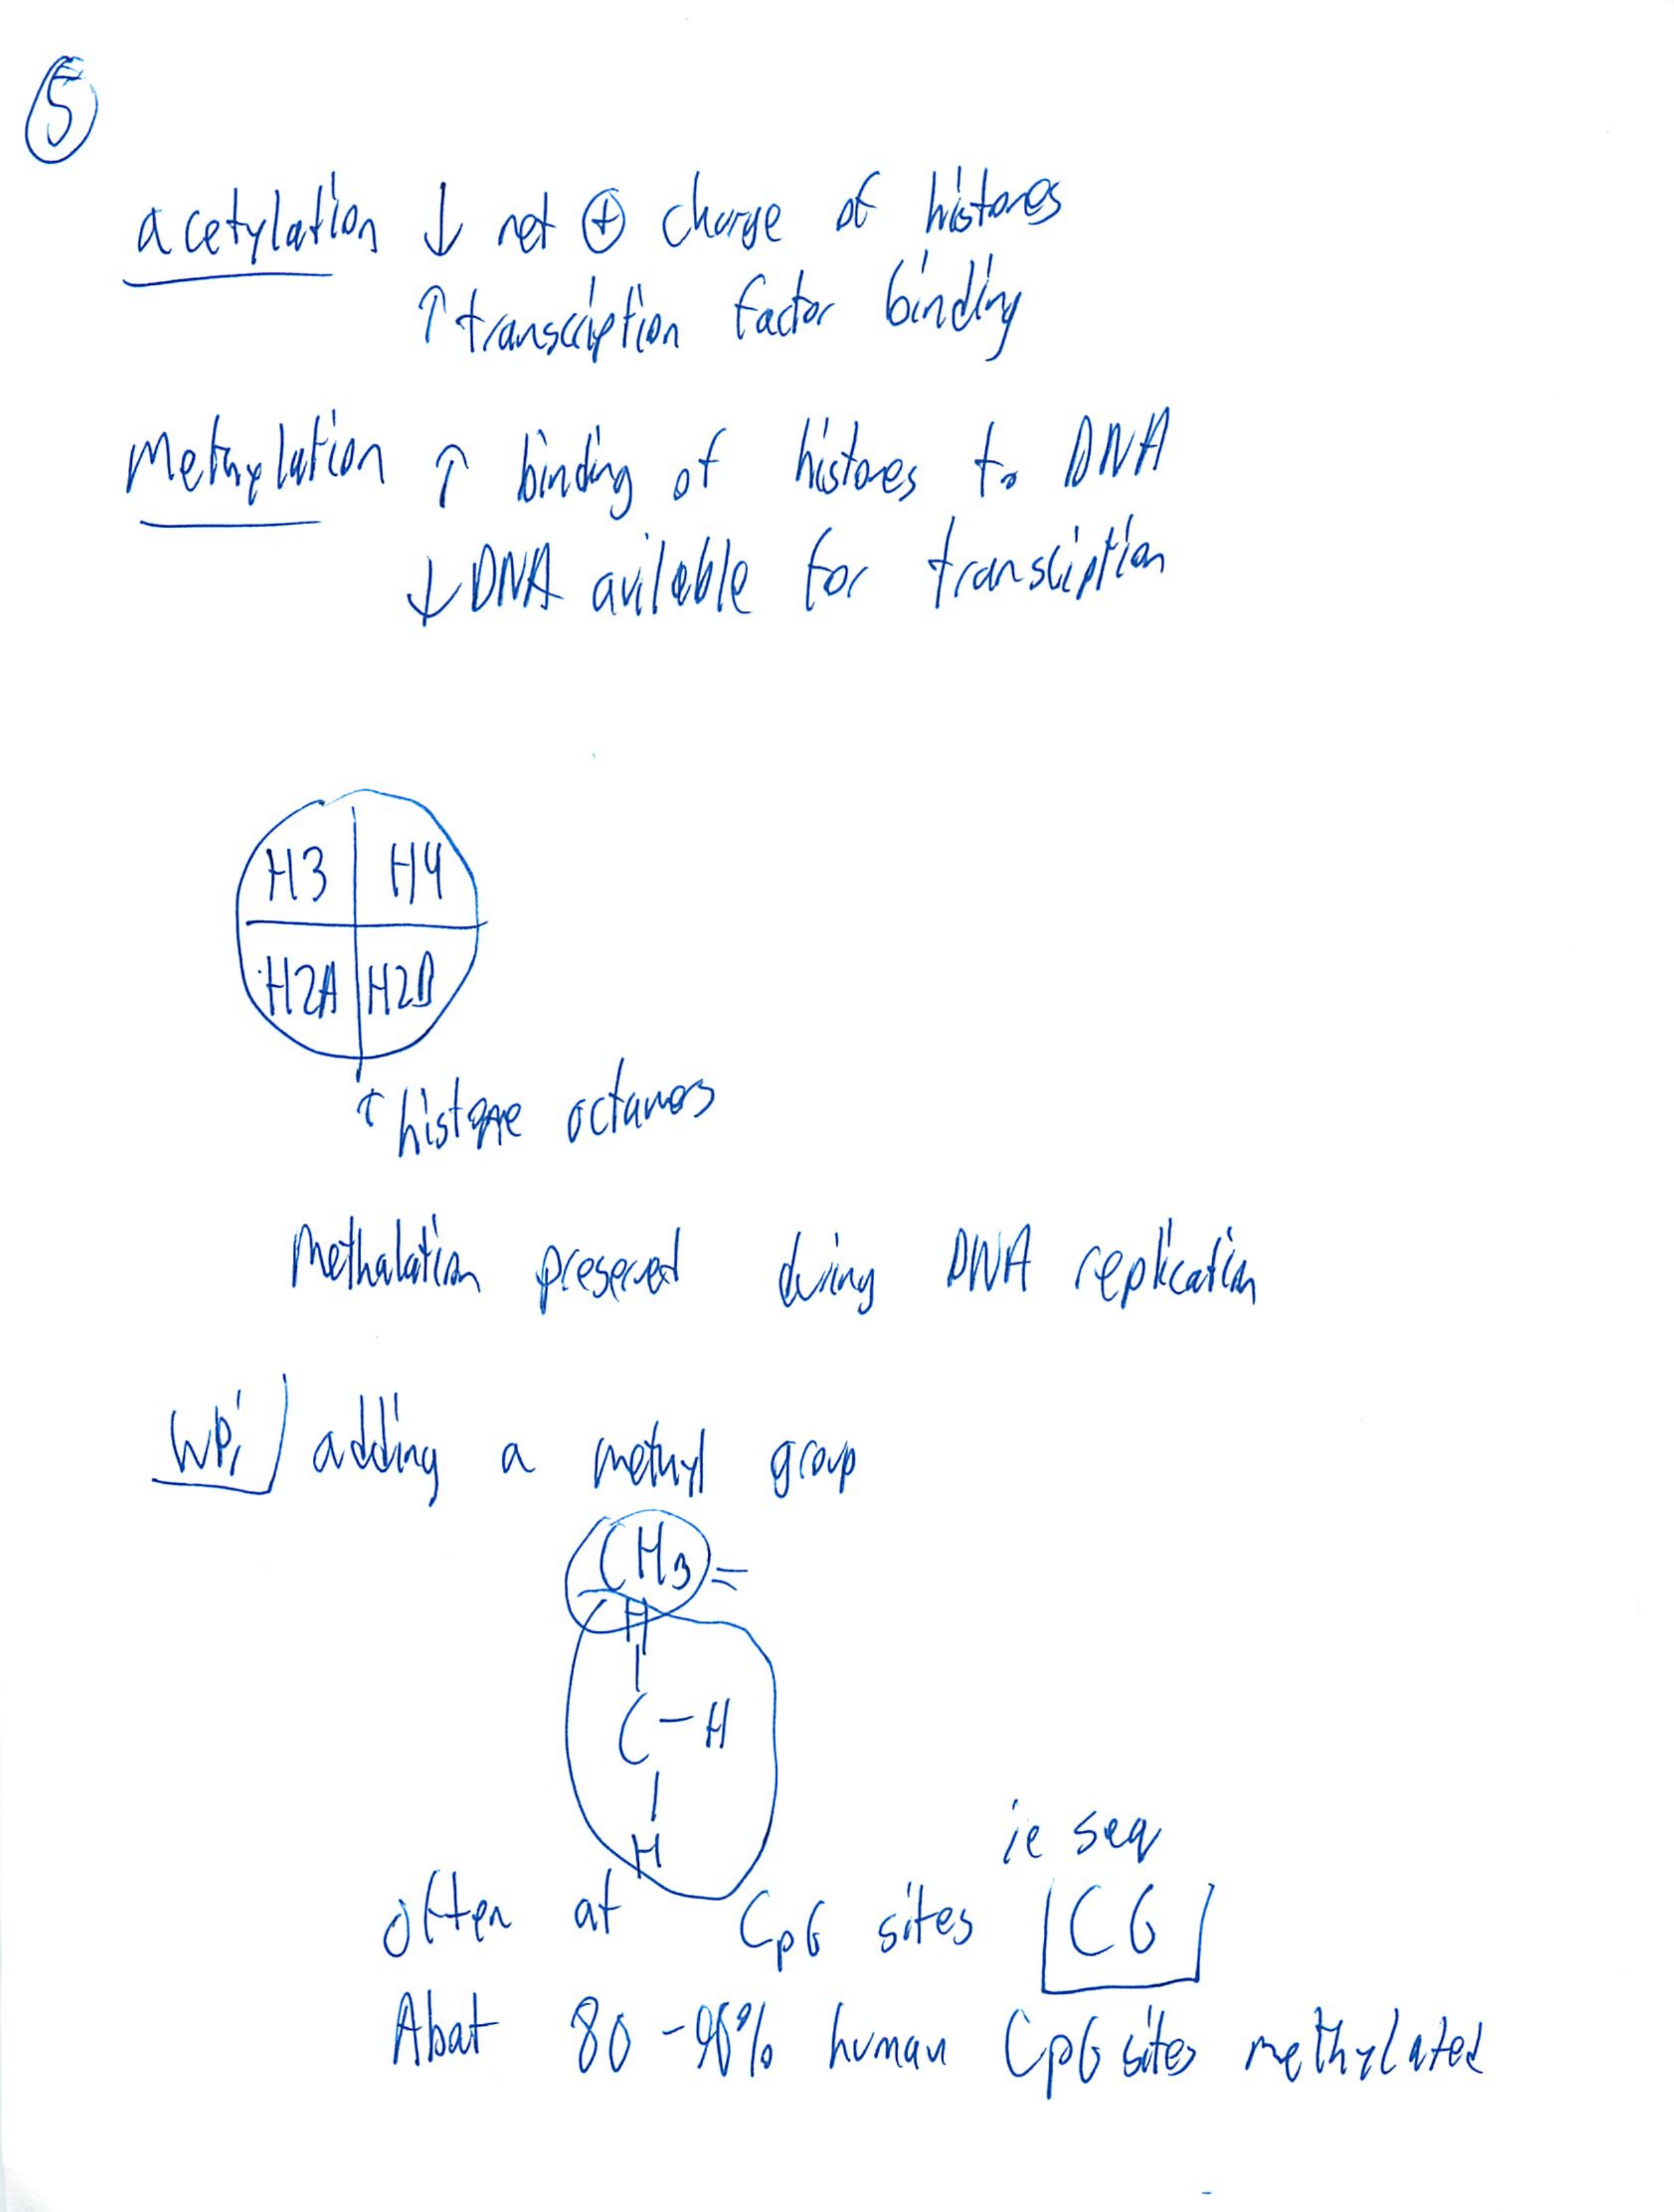 5
acetylation ↓ net ⊕ charge of histones
↑ transcription factor binding
Methylation ↑ binding of histones to DNA
↓ DNA avilable for transciption
H3 H4
H2A H2B
↑ histone octamers
Methalation preserved during DNA replication
WPi adding a methyl group
CH3 =
H
|
C - H
|
H
ie seq
often at CpG sites CG
About 80-90% human CpG sites methylated